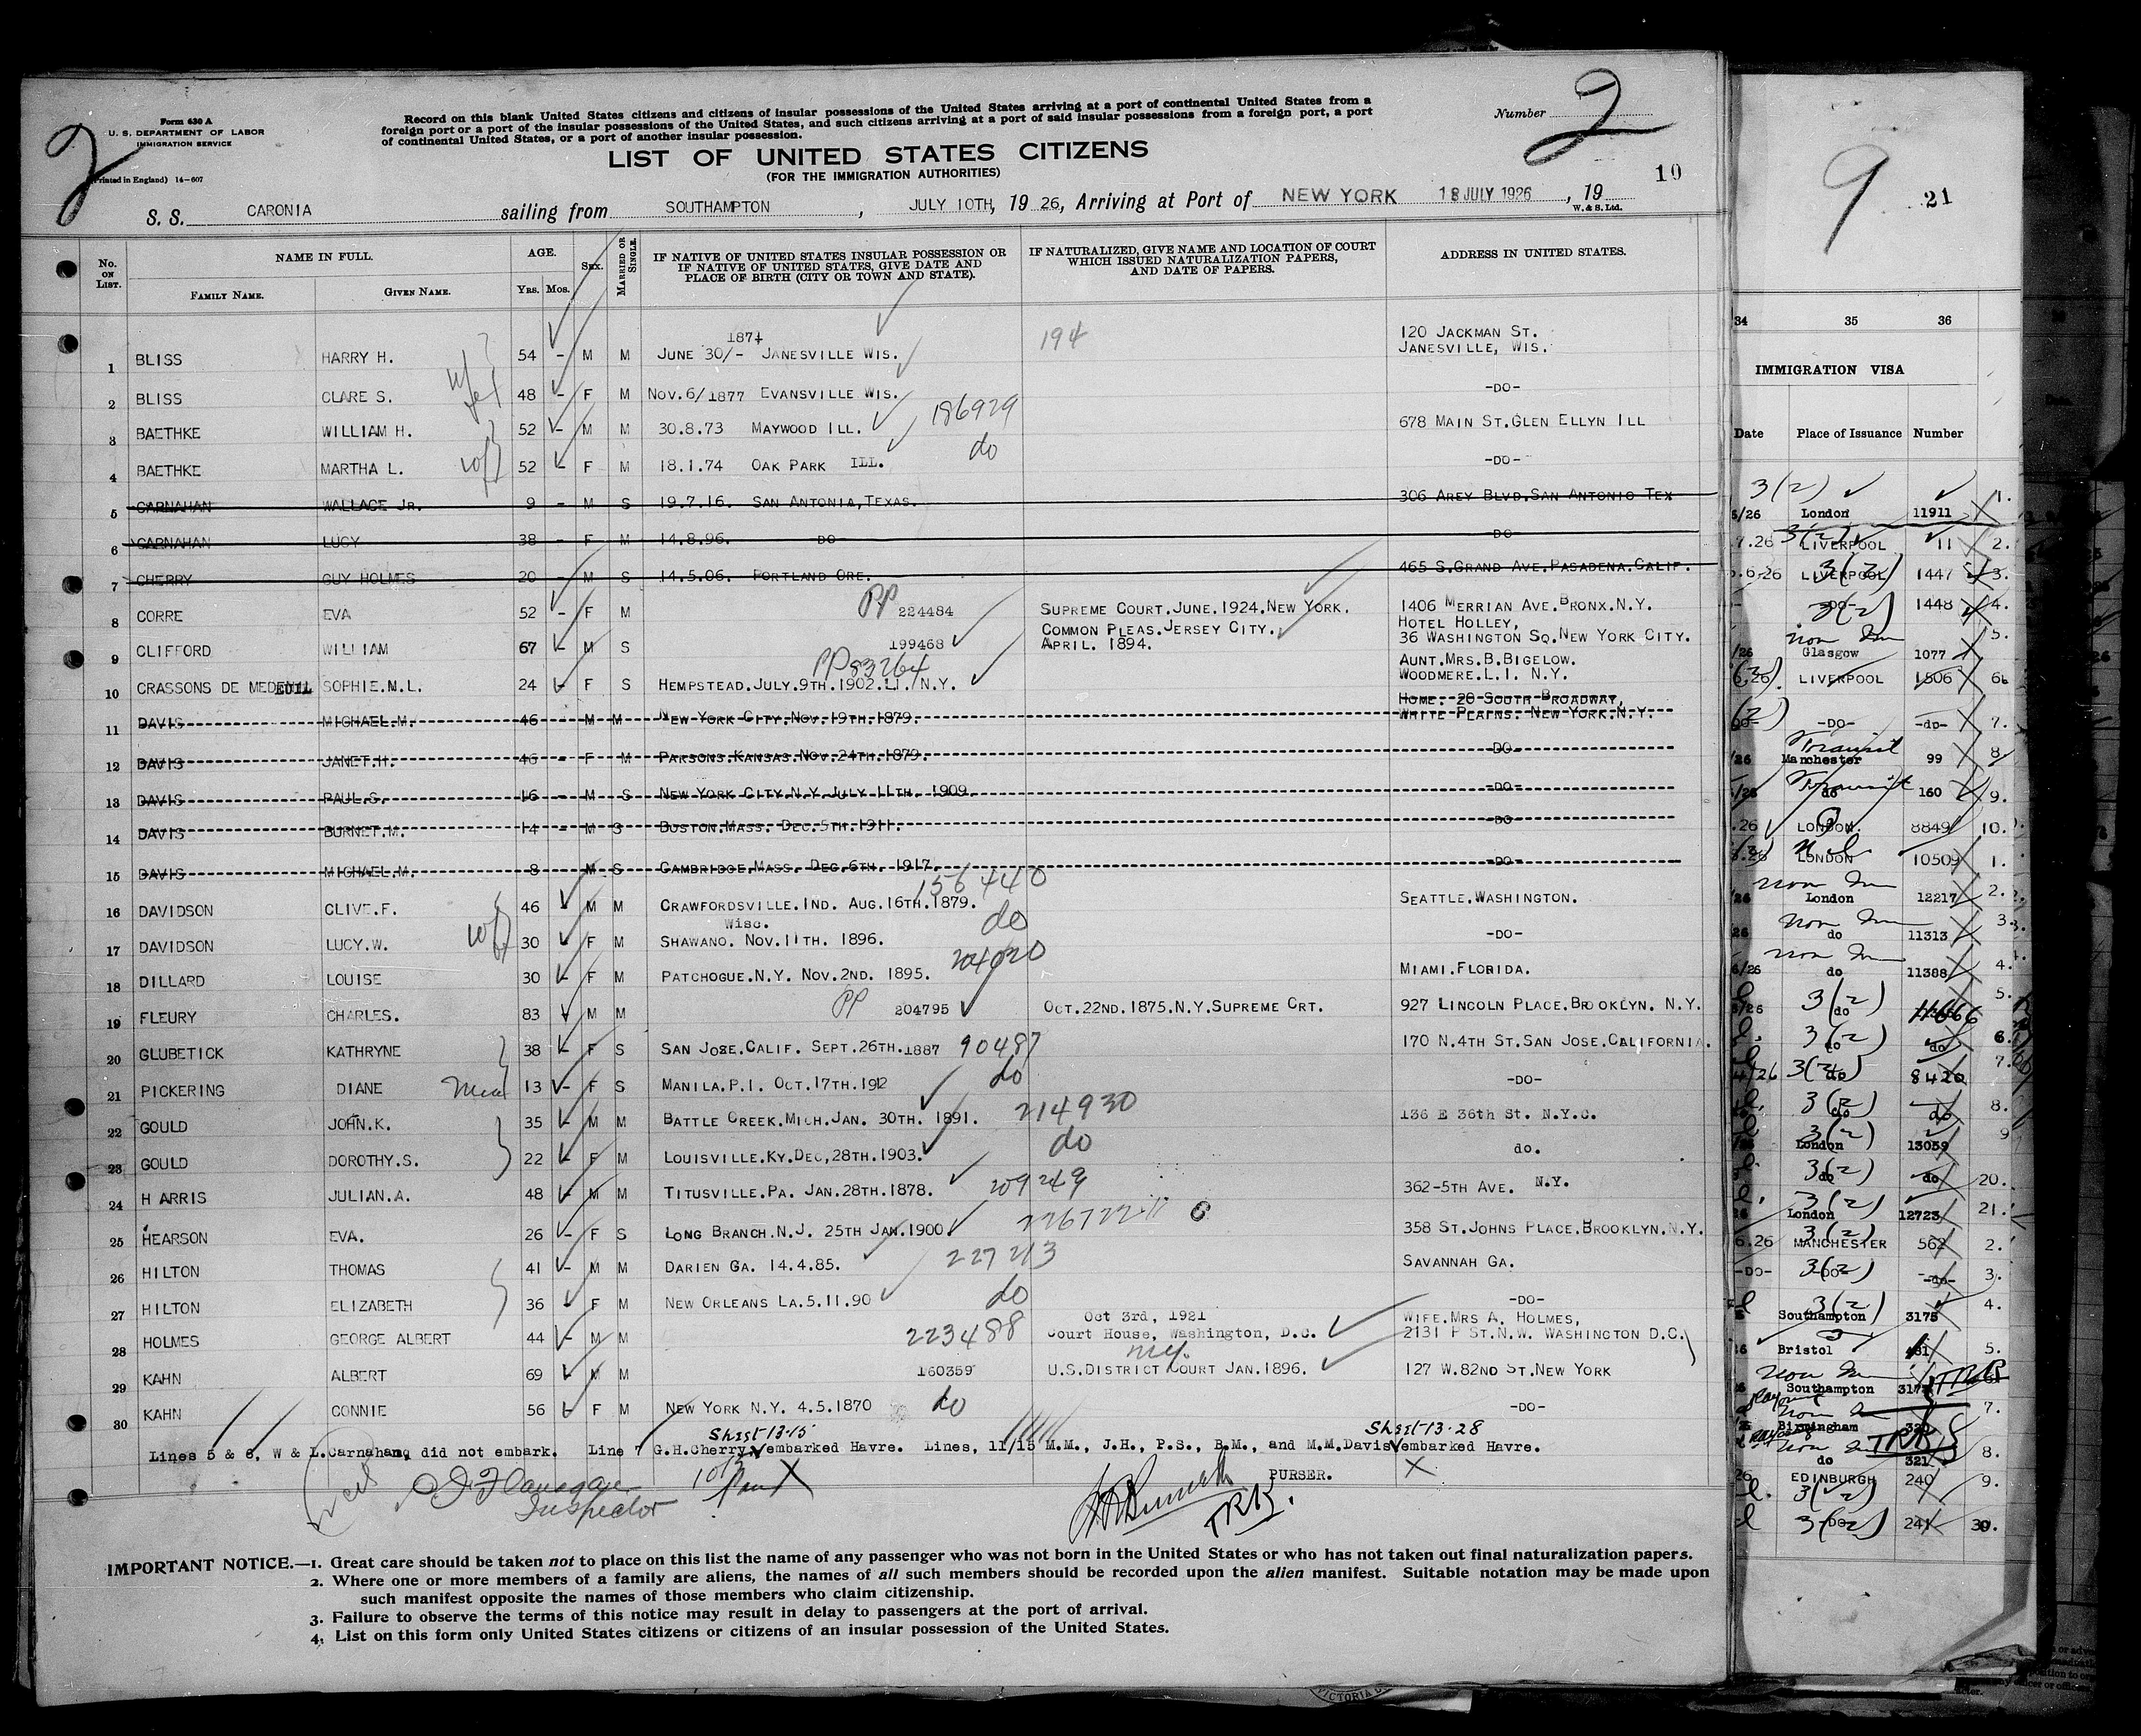 Form 630 A
U. S. DEPARTMENT OF LABOR
IMMIGRATION SERVICE
(Printed in England) 14-607
2
Record on this blank United States citizens and citizens of insular possessions of the United States arriving at a port of continental United States from a
foreign port or a port of the insular possessions of the United States, and such citizens arriving at a port of said insular possessions from a foreign port, a port
of continental United States, or a port of another insular possession.
Number 2
10
LIST OF UNITED STATES CITIZENS
(FOR THE IMMIGRATION AUTHORITIES)
S. S. CARONIA sailing from SOUTHAMPTON, JULY 10TH, 1926, Arriving at Port of NEW YORK 18 JULY 1926, 19
W. & S. Ltd.
No. ON LIST. NAME IN FULL. FAMILY NAME. GIVEN NAME. AGE. YRS. MOS. SEX. MARRIED OR SINGLE. IF NATIVE OF UNITED STATES INSULAR POSSESSION OR IF NATIVE OF UNITED STATES, GIVE DATE AND PLACE OF BIRTH (CITY OR TOWN AND STATE). IF NATURALIZED, GIVE NAME AND LOCATION OF COURT WHICH ISSUED NATURALIZATION PAPERS, AND DATE OF PAPERS. ADDRESS IN UNITED STATES.
1 BLISS HARRY H. 54 - M M JUNE 30/- 1871 JANESVILLE WIS. 194 120 JACKMAN ST. JANESVILLE, WIS.
2 BLISS CLARE S. 48 - F M NOV. 6/1877 EVANSVILLE WIS. -DO-
3 BAETHKE WILLIAM H. 52 - M M 30.8.73 MAYWOOD ILL. 186929 678 MAIN ST. GLEN ELLYN ILL
4 BAETHKE MARTHA L. 52 - F M 18.1.74 OAK PARK ILL. do -DO-
5 CARNAHAN WALLACE JR. 9 - M S 19.7.16. SAN ANTONIA, TEXAS. 306 AREY BLVD. SAN ANTONIO TEX
6 CARNAHAN LUCY 38 - F M 14.8.96. -DO- -DO-
7 CHERRY GUY HOLMES 20 - M S 14.5.06. PORTLAND ORE. 465 S. GRAND AVE. PASADENA. CALIF.
8 CORRE EVA 52 - F M PP 224484 SUPREME COURT. JUNE. 1924. NEW YORK. 1406 MERRIAN AVE. BRONX. N.Y.
9 CLIFFORD WILLIAM 67 - M S 199468 COMMON PLEAS. JERSEY CITY. APRIL. 1894. HOTEL HOLLEY, 36 WASHINGTON SQ. NEW YORK CITY.
10 CRASSONS DE MEDEUIL SOPHIE. M. L. 24 - F S HEMPSTEAD. JULY. 9TH. 1902. LI. N.Y. PP 83264 AUNT. MRS. B. BIGELOW. WOODMERE. L. I. N.Y.
11 DAVIS MICHAEL. M. 46 - M M NEW YORK CITY. NOV. 19TH. 1879. HOME: 20 SOUTH BROADWAY, WHITE PLAINS. NEW YORK. N.Y.
12 DAVIS JANET. H. 46 - F M PARSONS. KANSAS. NOV. 24TH. 1879. -DO-
13 DAVIS PAUL. S. 16 - M S NEW YORK CITY. N.Y. JULY 11TH. 1909. -DO-
14 DAVIS BURNET. M. 14 - M S BOSTON. MASS. DEC. 5TH. 1911. -DO-
15 DAVIS MICHAEL. M. 8 - M S CAMBRIDGE. MASS. DEC. 6TH. 1917. -DO-
16 DAVIDSON CLIVE. F. 46 M M CRAWFORDSVILLE. IND. AUG. 16TH. 1879. 156440 SEATTLE. WASHINGTON.
17 DAVIDSON LUCY. W. 30 - F M SHAWANO. Wisc. NOV. 11TH. 1896. do -DO-
18 DILLARD LOUISE 30 - F M PATCHOGUE. N.Y. NOV. 2ND. 1895. 204020 MIAMI. FLORIDA.
19 FLEURY CHARLES. 83 - M M PP 204795 OCT. 22ND. 1875. N.Y. SUPREME CRT. 927 LINCOLN PLACE. BROOKLYN. N.Y.
20 GLUBETICK KATHRYNE 38 - F S SAN JOSE. CALIF. SEPT. 26TH. 1887 90487 170 N. 4TH ST. SAN JOSE. CALIFORNIA.
21 PICKERING DIANE 13 - F S MANILA. P. I. OCT. 17TH. 1912 do -DO-
22 GOULD JOHN. K. 35 - M M BATTLE CREEK. MICH. JAN. 30TH. 1891. 214930 136 E 36th St. N.Y.C.
23 GOULD DOROTHY. S. 22 - F M LOUISVILLE. KY. DEC, 28TH. 1903. do do.
24 H ARRIS JULIAN. A. 48 - M M TITUSVILLE. PA. JAN. 28TH. 1878. 209249 362-5TH AVE. N.Y.
25 HEARSON EVA. 26 - F S LONG BRANCH. N.J. 25TH JAN. 1900. 226722 358 ST. JOHNS PLACE. BROOKLYN. N.Y.
26 HILTON THOMAS 41 - M M DARIEN GA. 14.4.85. 227213 SAVANNAH GA.
27 HILTON ELIZABETH 36 - F M NEW ORLEANS LA. 5.11.90 do -DO-
28 HOLMES GEORGE ALBERT 44 - M M 223488 Oct 3rd, 1921 Court House, Washington, D.C. WIFE. MRS A. HOLMES, 2131 P ST. N.W. WASHINGTON D.C.
29 KAHN ALBERT 69 - M M 160359 U.S. DISTRICT COURT JAN. 1896. N.Y. 127 W. 82ND ST. NEW YORK
30 KAHN CONNIE 56 - F M NEW YORK N.Y. 4.5.1870 do -DO-
Sheet 13-15 Sheet 13-28
Lines 5 & 6, W & L. Carnahan, did not embark. Line 7 G.H. Cherry, embarked Havre. Lines, 11/15 M.M., J.H., P.S., B.M., and M.M. Davis embarked Havre.
PURSER.
Inspector
TRB.
IMPORTANT NOTICE.—1. Great care should be taken not to place on this list the name of any passenger who was not born in the United States or who has not taken out final naturalization papers.
2. Where one or more members of a family are aliens, the names of all such members should be recorded upon the alien manifest. Suitable notation may be made upon
such manifest opposite the names of those members who claim citizenship.
3. Failure to observe the terms of this notice may result in delay to passengers at the port of arrival.
4. List on this form only United States citizens or citizens of an insular possession of the United States.
9 21
34 35 36
IMMIGRATION VISA
Date Place of Issuance Number
3(2) London 11911 1.
7.26 LIVERPOOL 11 2.
LIVERPOOL 1447 3.
-DO- 1448 4.
Glasgow 1077 5.
LIVERPOOL 1506 6.
-DO- -do- 7.
Transit Manchester 99 8
Transit do 160 9.
LONDON. 8849 10.
LONDON 10509 1.
London 12217 2.
do 11313 3.
do 11388 4.
3(2) do 11666 5.
3(2) do do 6.
3(2) do 8420 7.
3(2) do do 8.
3(2) London 13059 9
3(2) do do 20.
3(2) London 12723 21.
3(2) MANCHESTER 562 2.
-DO- 3(2) -DO- -do- 3.
3(2) Southampton 3175 4.
Bristol 5.
Southampton TRB
Birmingham 320 7.
do 321 TRB 8.
EDINBURGH 240 9.
3(2) -DO- 241 30.